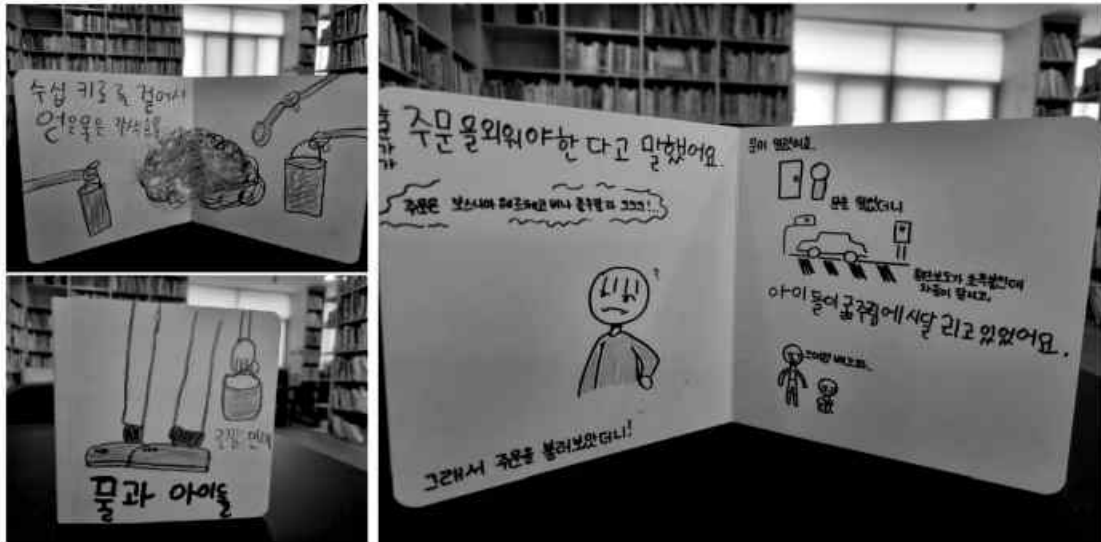 수십 키로를 걸어서
얻은물은
물과 아이들
주문을외워야한다고 말했어요.
주문은 보스니아
그래서 주문을 불러보았더니!
문이 열렸어요.
문을 열었더니
횡단보도가 초록불인데
차들이 달리고,
아이들이 굶주림에 시달리고 있었어요.
배고파..